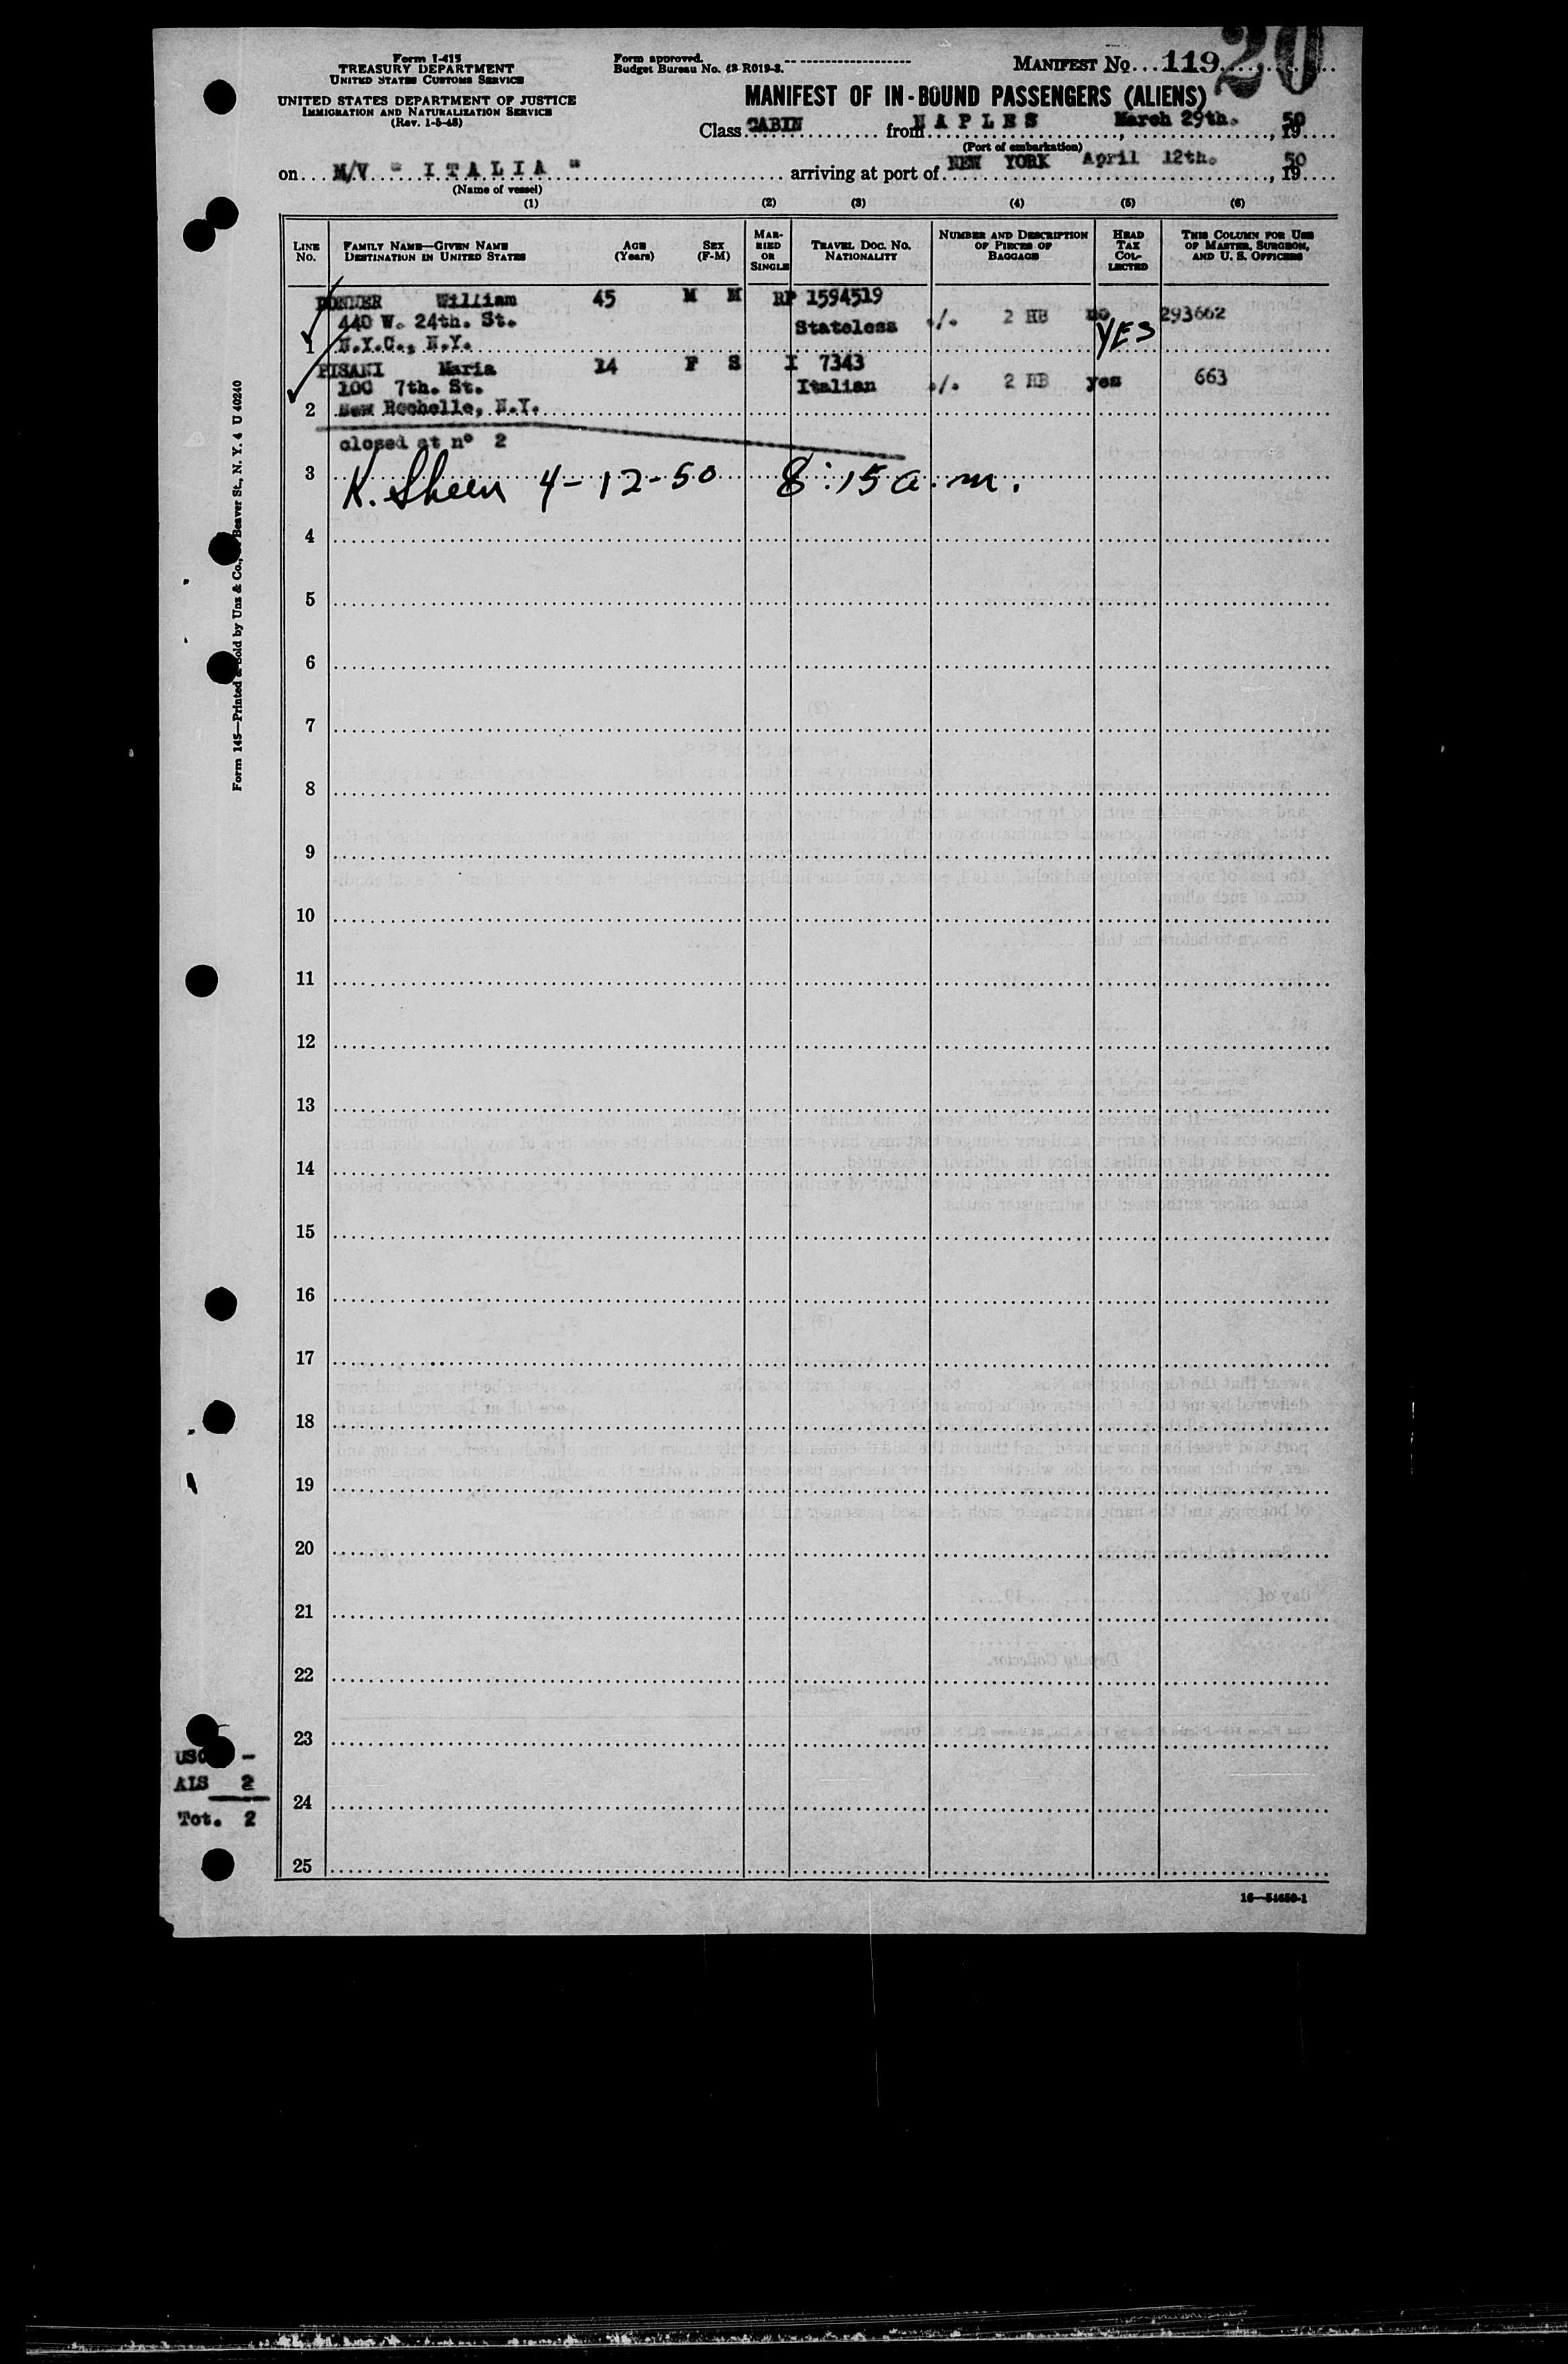 Form I-415
TREASURY DEPARTMENT
UNITED STATES CUSTOMS SERVICE
UNITED STATES DEPARTMENT OF JUSTICE
IMMIGRATION AND NATURALIZATION SERVICE
(Rev. 1-5-48)
Form approved.
Budget Bureau No. 43 R019-3.
MANIFEST No 119
20
MANIFEST OF IN-BOUND PASSENGERS (ALIENS)
Class CABIN from NAPLES March 29th. , 19 50
(Port of embarkation)
on M/V " ITALIA " arriving at port of NEW YORK April 12th. , 19 50
(Name of vessel)
(1) (2) (3) (4) (5) (6)
LINE No. FAMILY NAME—GIVEN NAME DESTINATION IN UNITED STATES AGE (Years) SEX (F-M) MARRIED OR SINGLE TRAVEL DOC. NO. NATIONALITY NUMBER AND DESCRIPTION OF PIECES OF BAGGAGE HEAD TAX COLLECTED THIS COLUMN FOR USE OF MASTER, SURGEON, AND U. S. OFFICERS
William 45 M M RP 1594519
440 W. 24th. St. Stateless ./. 2 HB no YES 293662
1 N.Y.C., N.Y.
PISANI Maria 14 F S I 7343
100 7th. St. Italian ./. 2 HB yes 663
2 New Rochelle, N.Y.
closed at n° 2
3 K. Sheen 4-12-50 8:15 a.m.
4
5
6
7
8
9
10
11
12
13
14
15
16
17
18
19
20
21
22
23
24
25
USC -
ALS 2
Tot. 2
Form 145—Printed & Sold by Unz & Co., Beaver St., N. Y. 4 U 40240
16—54650-1